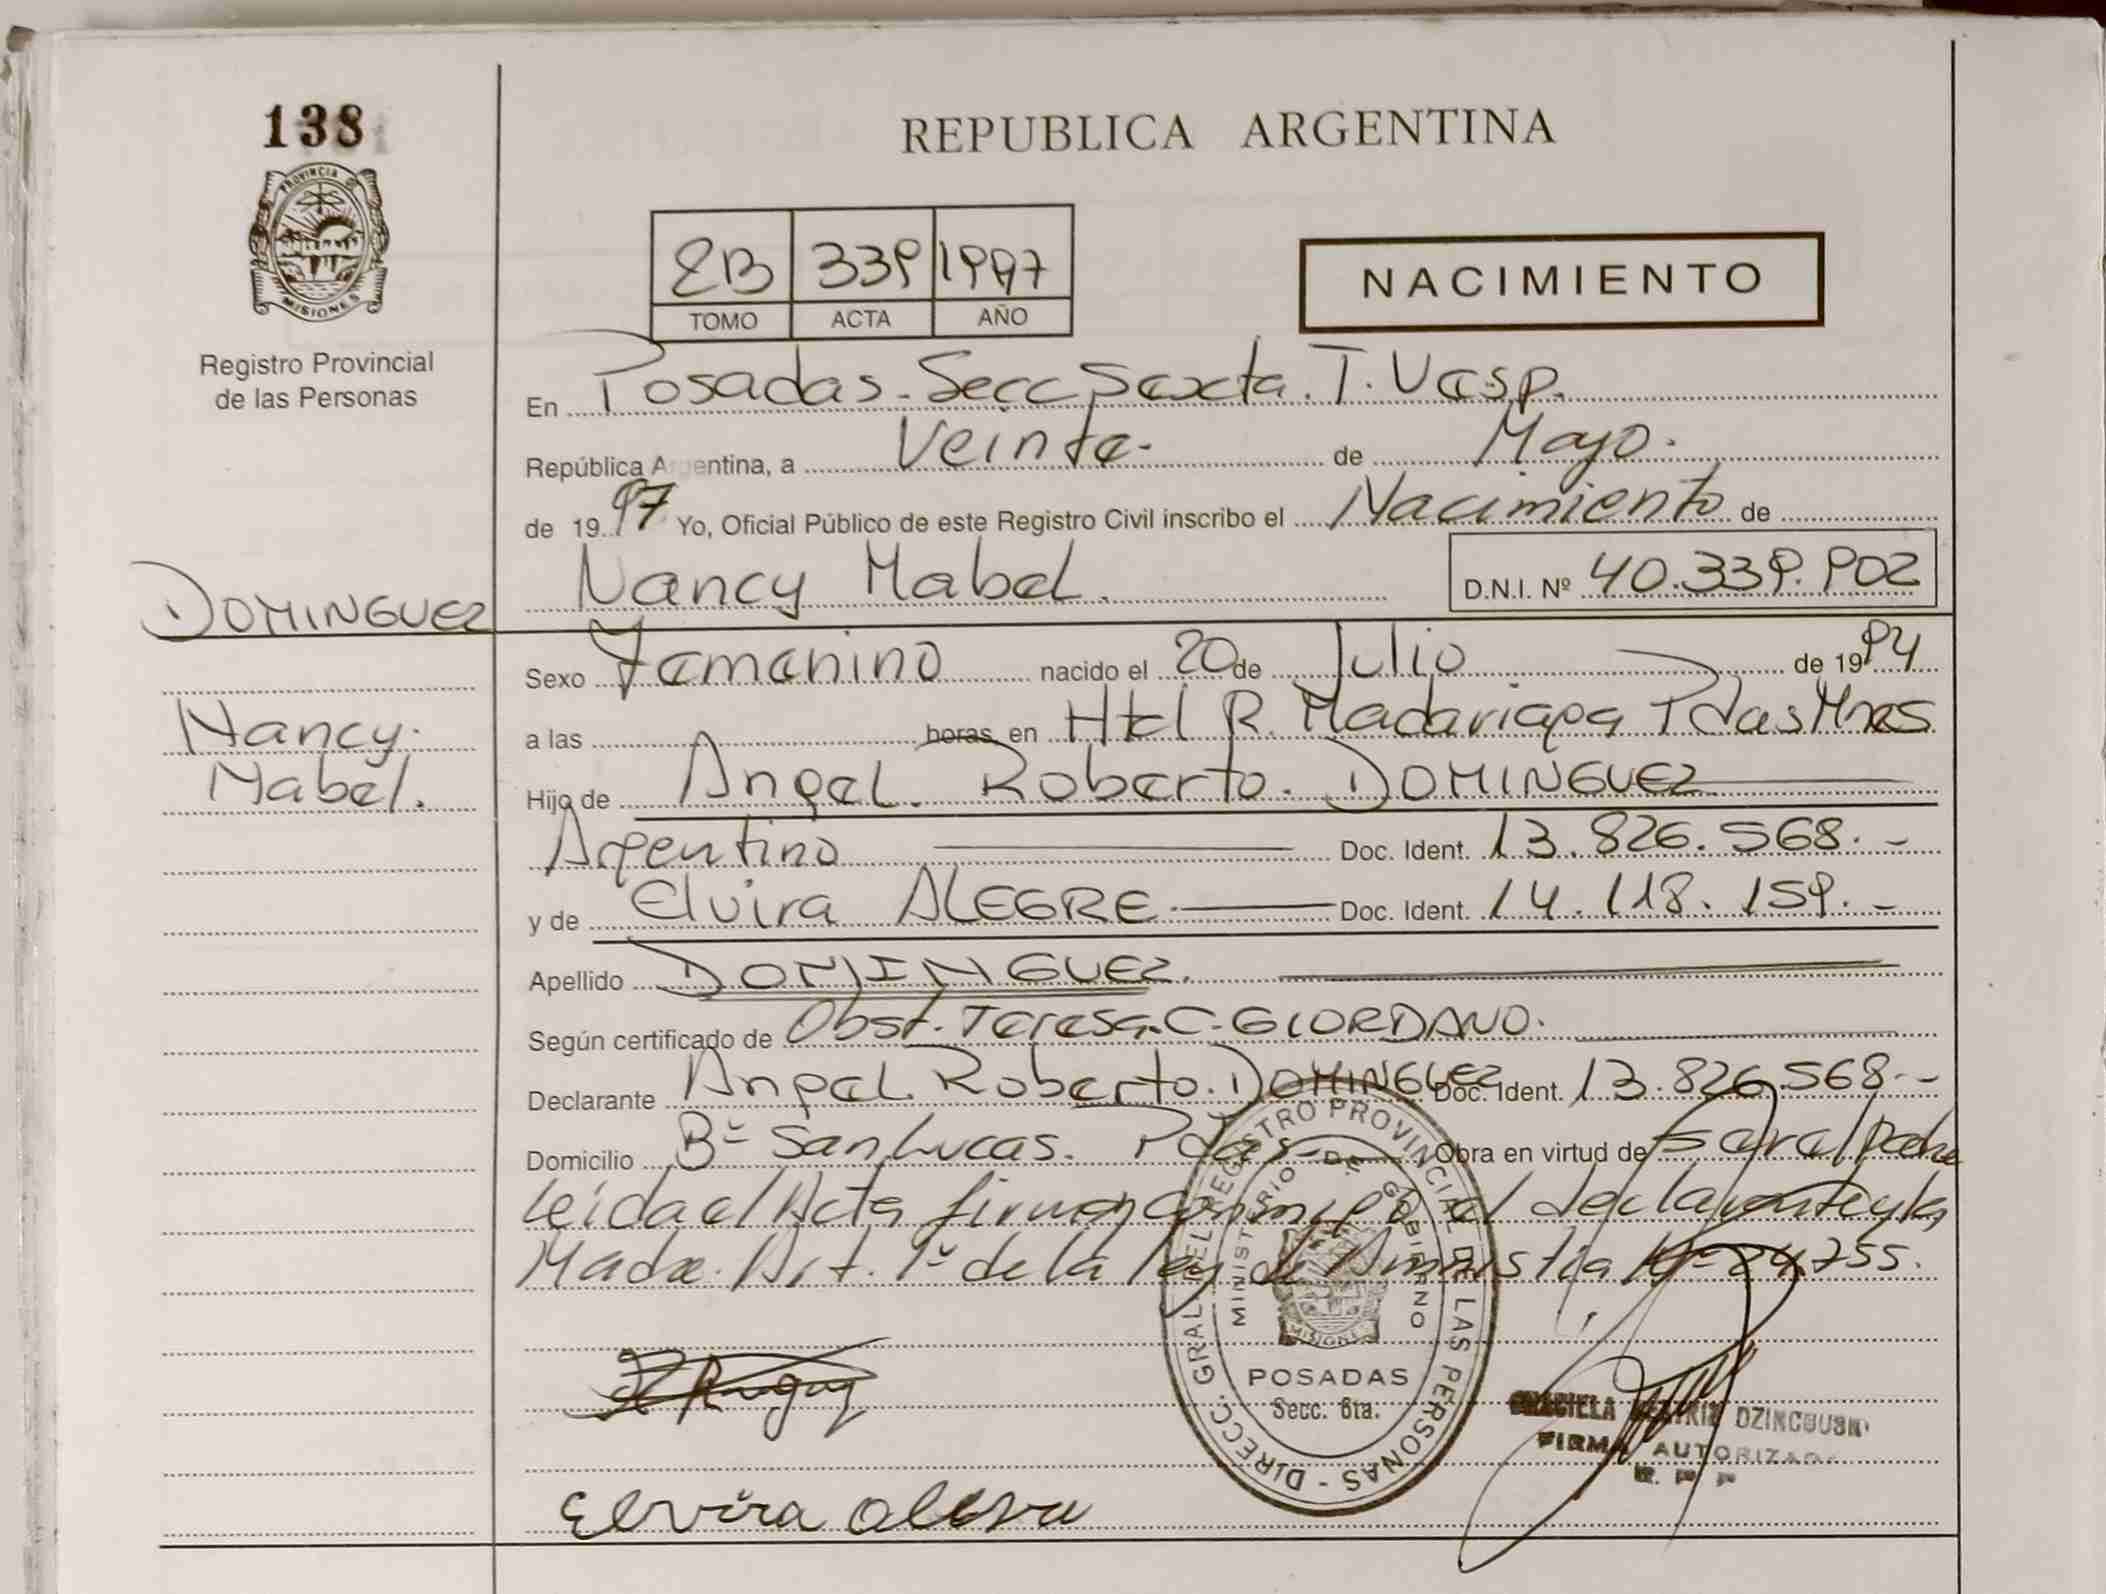 138
REPUBLICA ARGENTINA
PROVINCIA DE MISIONES
Registro Provincial
de las Personas
2B 339 1997
TOMO ACTA AÑO
NACIMIENTO
En Posadas. Secc Sexta. T. Uesp.
República Argentina, a Veinte. de Mayo.
de 1997 Yo, Oficial Público de este Registro Civil inscribo el Nacimiento de
Nancy Mabel. D.N.I. Nº 40.339.902
DOMINGUEZ
Nancy.
Mabel.
Sexo Femenino nacido el 20 de Julio de 1994
a las horas en Htal R. Madariaga Pdas Mnes
Hijo de Angel. Roberto. DOMINGUEZ
Argentino Doc. Ident. 13.826.568.-
y de Elvira ALEGRE. Doc. Ident. 14.118.159.-
Apellido DOMINGUEZ.
Según certificado de Obst. Teresa.C.GIORDANO.
Declarante Angel. Roberto. DOMINGUEZ Doc. Ident. 13.826.568.-
Domicilio Bº San Lucas. Pdas- Obra en virtud de ser el Padre
leida el Acta firman conmigo el declarante y la
Madre. Art. 1º de la Ley de Amnistia Nº 24.755.
DIRECC. GRAL. DEL REGISTRO PROVINCIAL DE LAS PERSONAS -
MINISTERIO DE GOBIERNO
MISIONES
POSADAS
Secc. 6ta.
GRACIELA BEATRIZ
FIRMA AUTORIZADA
Elvira